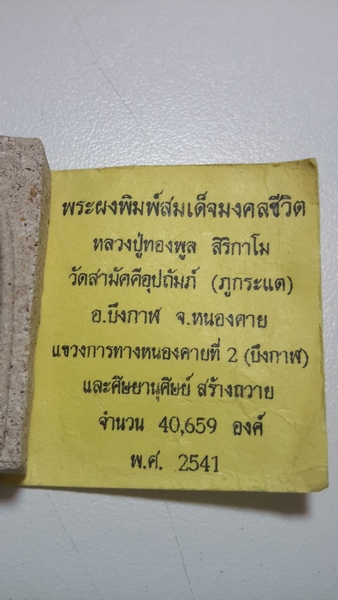 พระผงพิมพ์สมเด็จมงคลชีวิต
หลวงปู่ทองพูล สิริกาโม
วัดสามัคคีอุปถัมภ์ (ภูกระแต)
อ.บึงกาฬ จ.หนองคาย
แขวงการทางหนองคายที่ 2 (บึงกาฬ)
และศิษยานุศิษย์ สร้างถวาย
จำนวน 40,659 องค์
พ.ศ. 2541